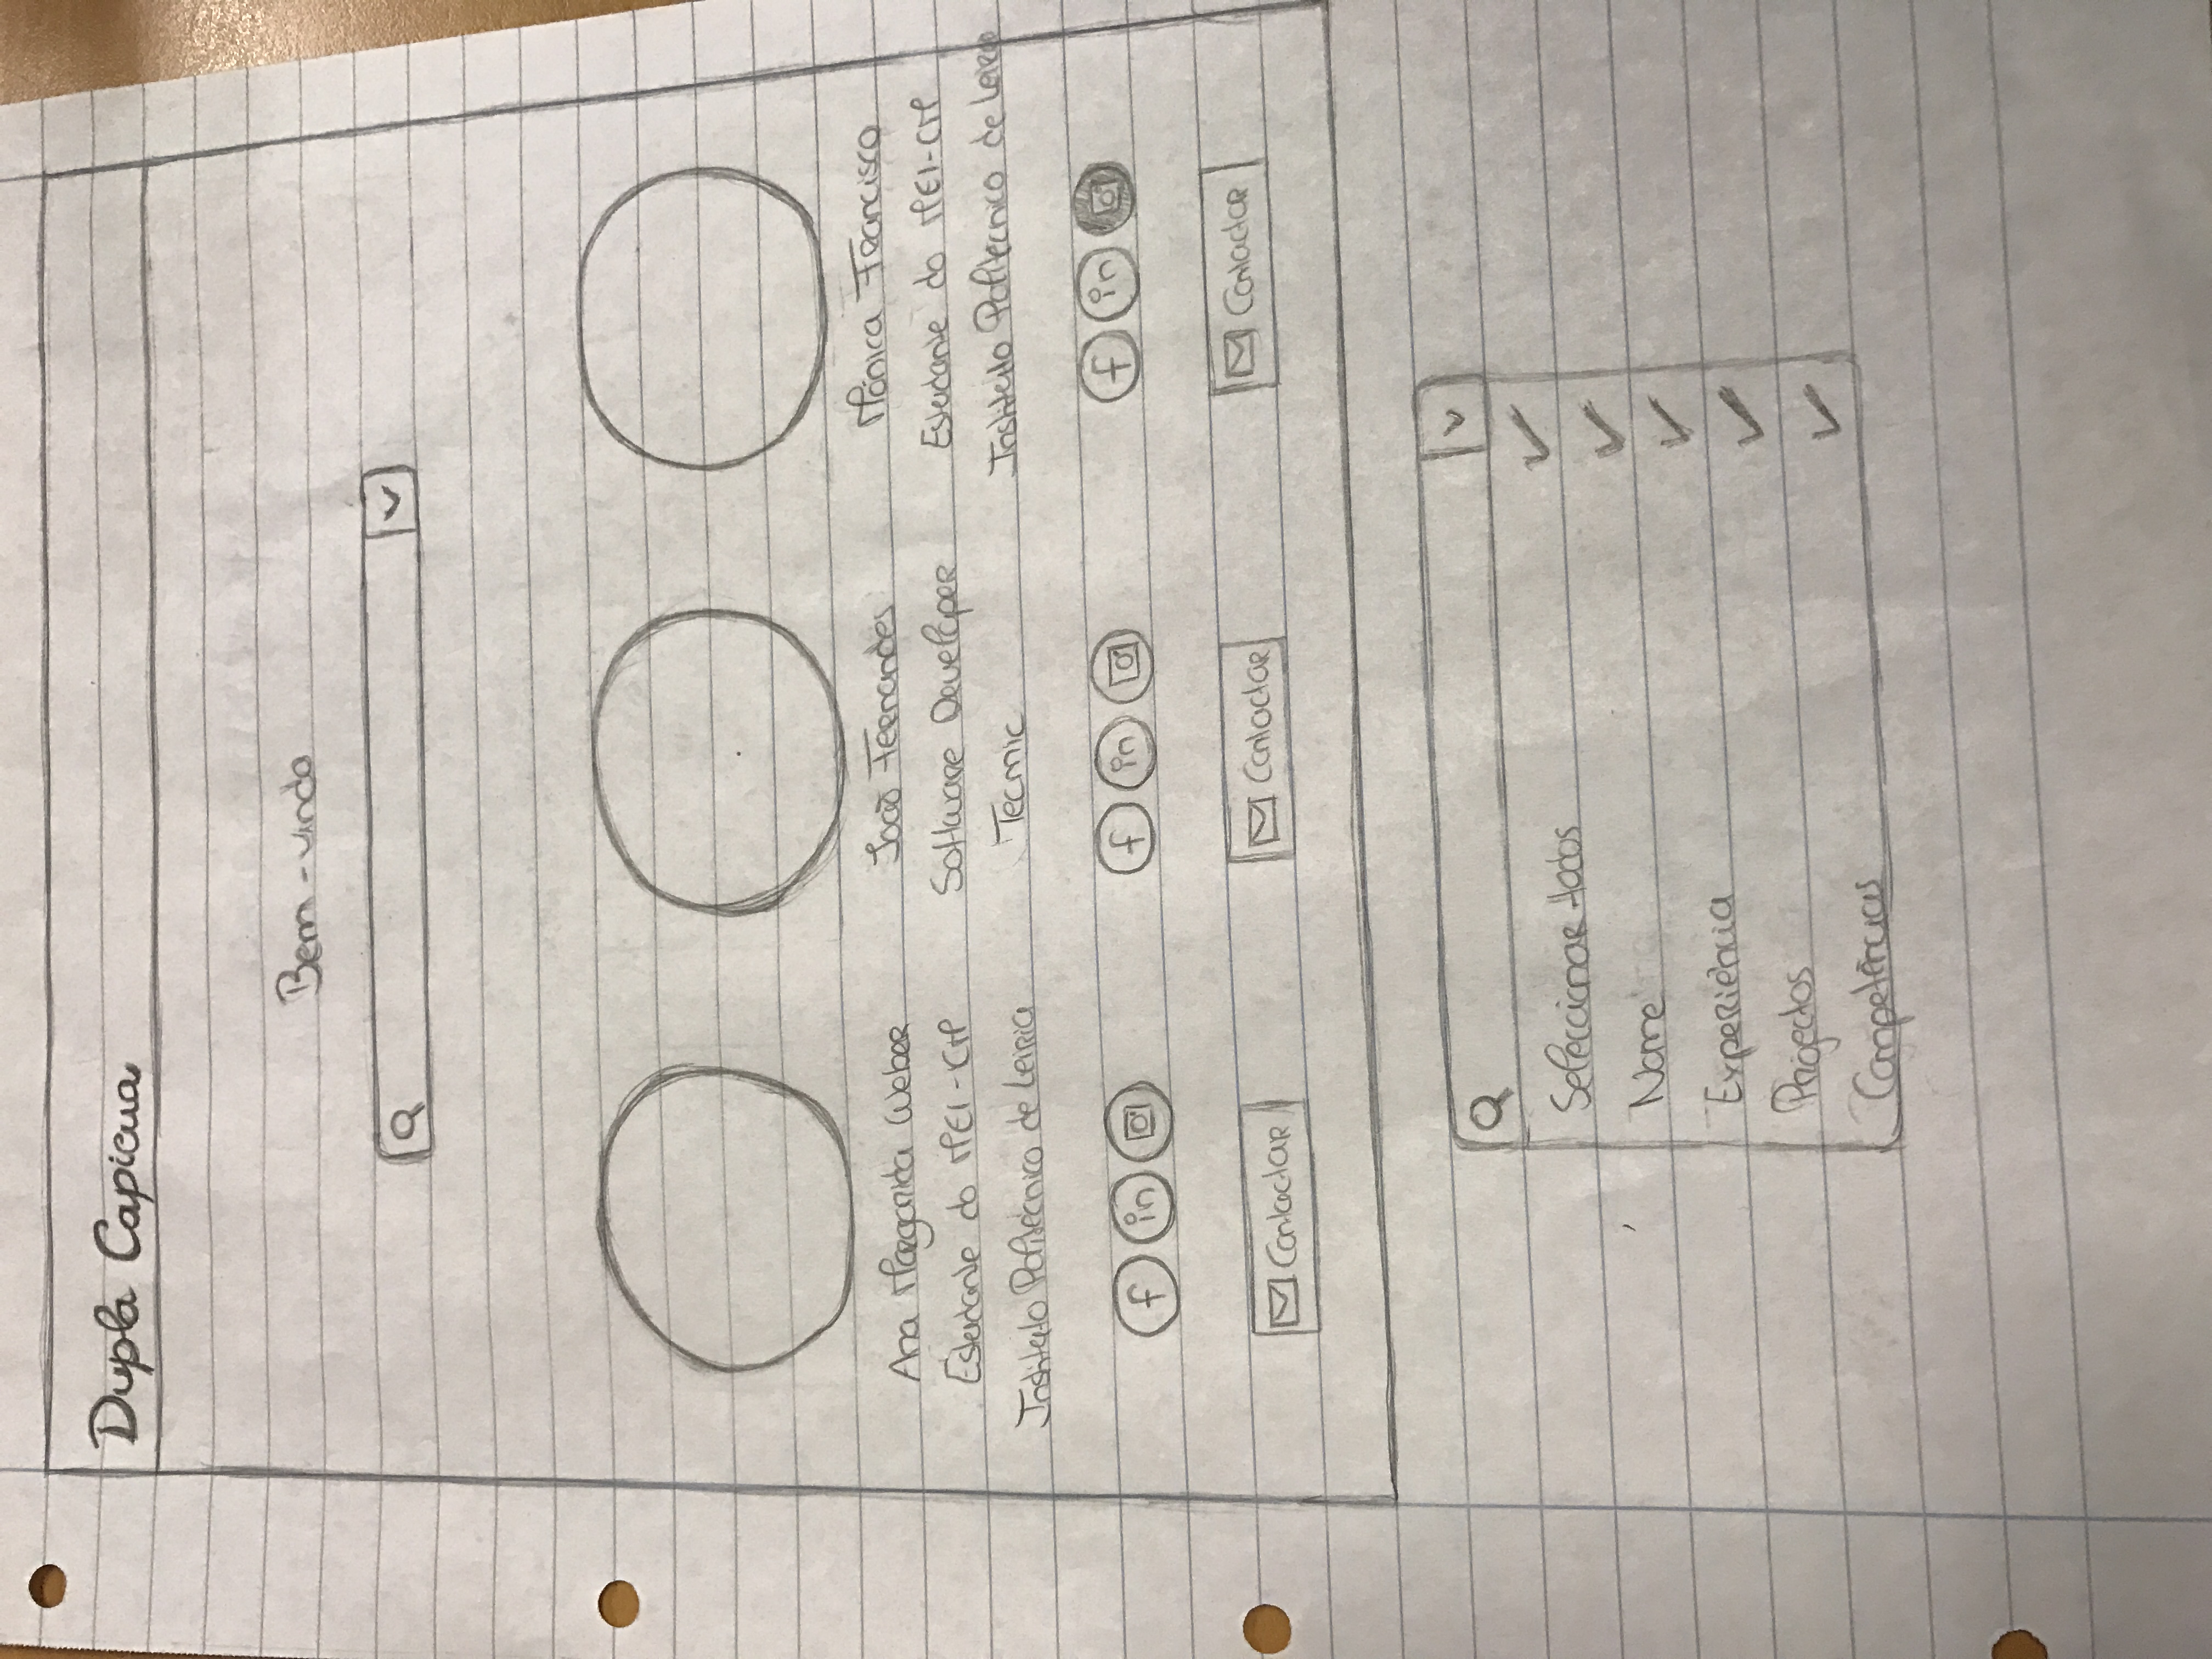 Dupla Capicua
Bem-vindo
Ana Margarida Weber
Estudante do MEI-CM
Instituto Politécnico de Leiria
f in
Contactar
João Fernandes
Software Developer
Tecmic
f in
Contactar
Mónica Francisco
Estudante do MEI-CM
Instituto Politécnico de Leiria
f in
Contactar
Seleccionar todos
Nome
Experiência
Projectos
Competências